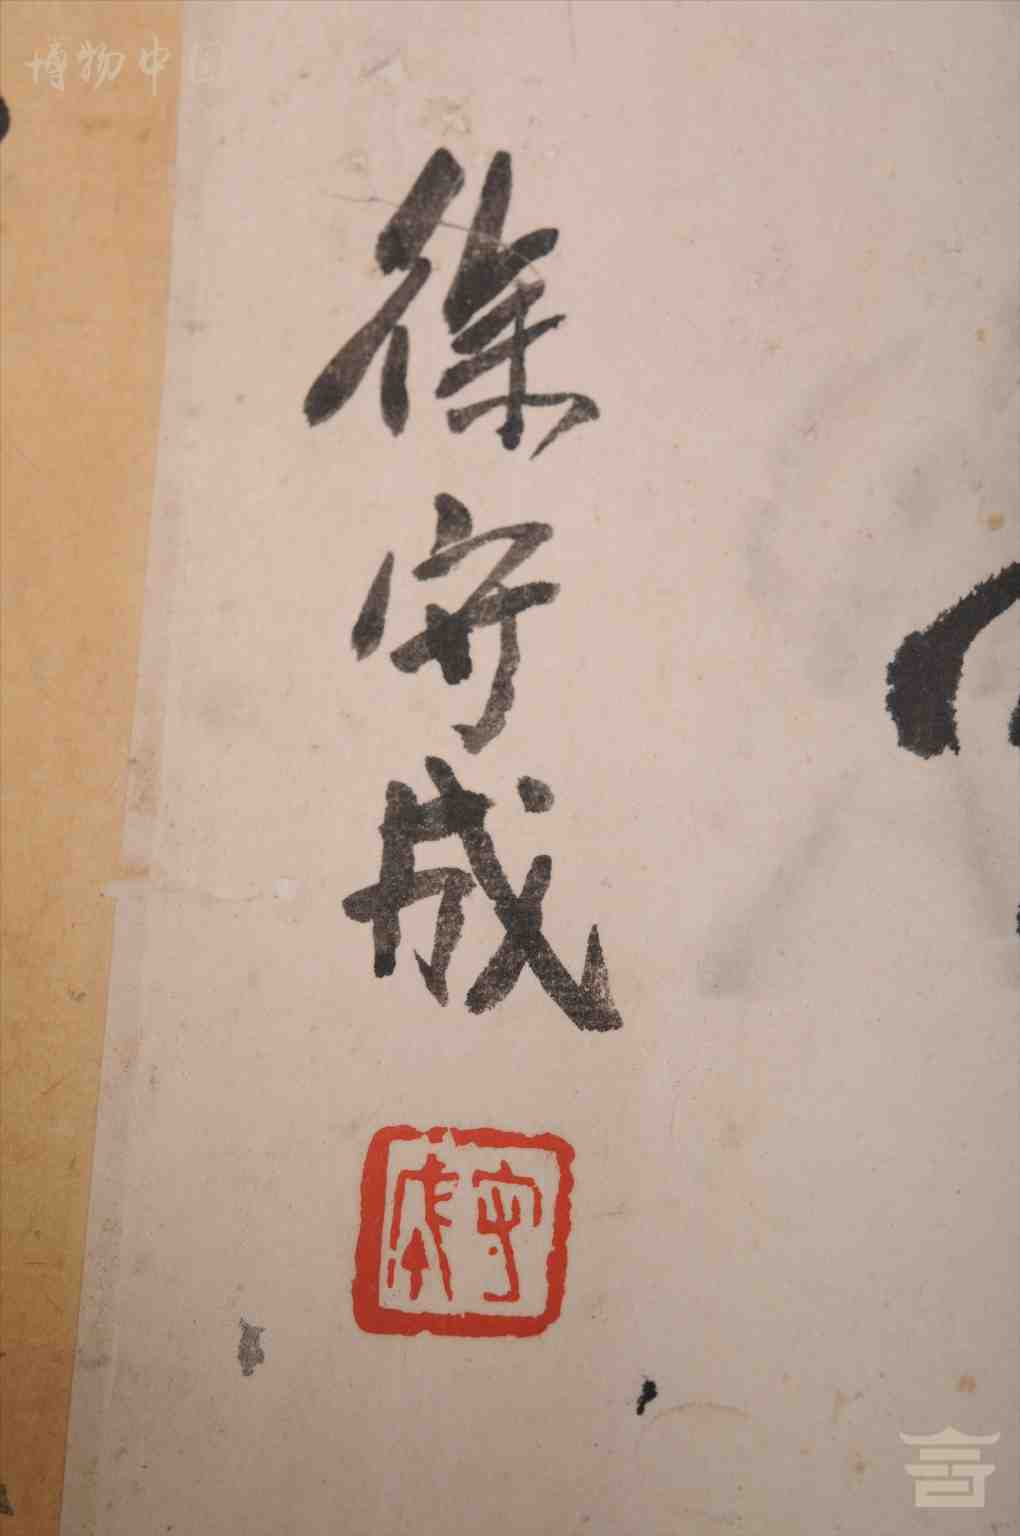 博物中国
徐守成
守成